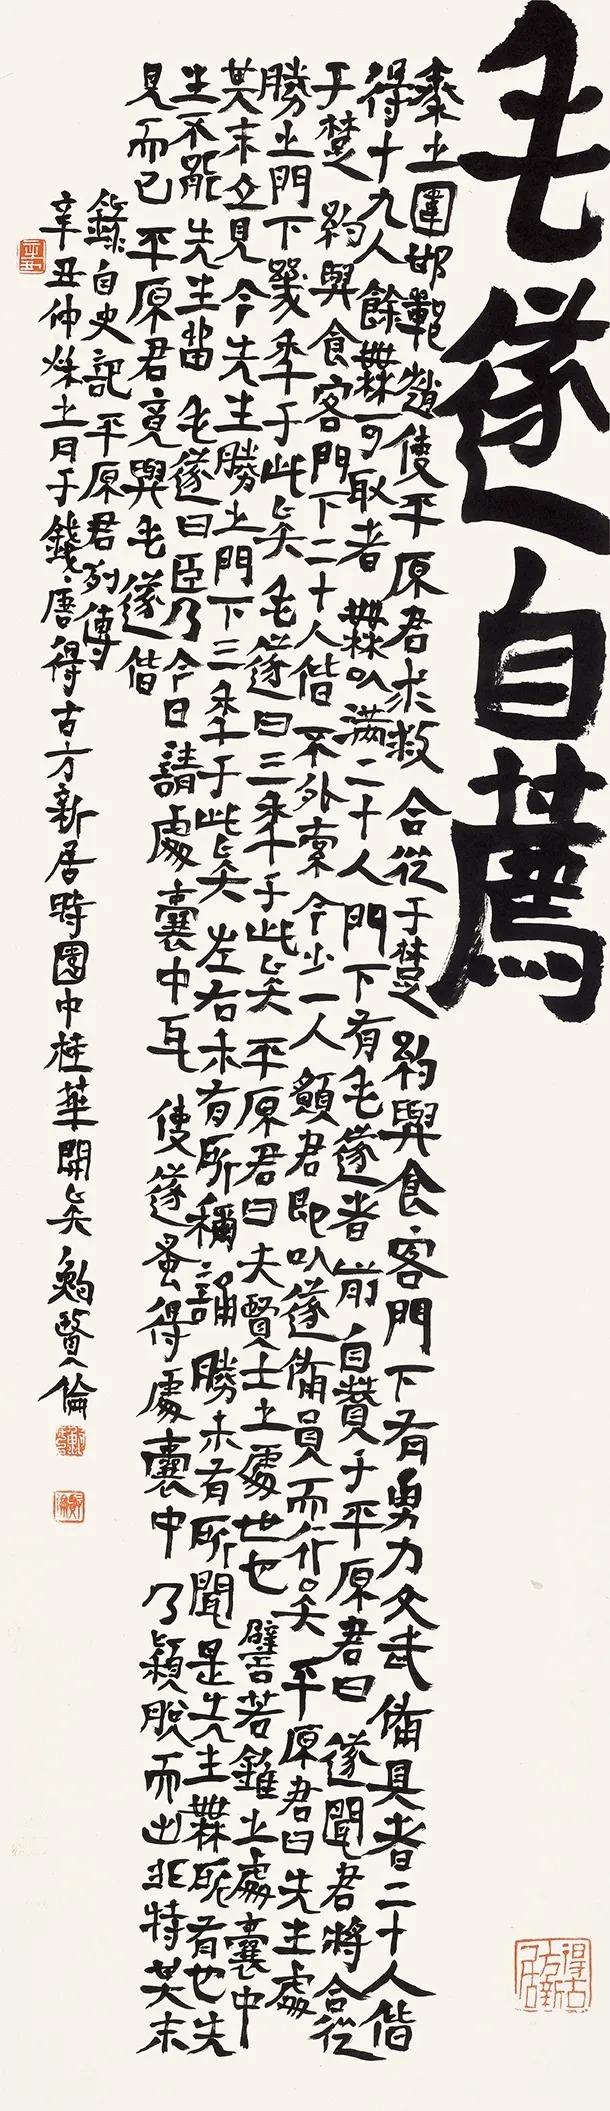 毛遂自薦
秦之圍邯鄲趙使平原君求救合從于楚約與食客門下有勇力文武備具者二十人偕
得十九人餘無可取者無以滿二十人門下有毛遂者前自贊于平原君曰遂聞君將合從
于楚約與食客門下二十人偕不外索今少一人願君即以遂備員而行矣平原君曰先生處
勝之門下幾年于此矣毛遂曰三年于此矣平原君曰夫賢士之處世也譬若錐之處囊中
其末立見今先生處勝之門下三年于此矣左右未有所稱誦勝未有所聞是先生無所有也先
生不能先生留毛遂曰臣乃今日請處囊中耳使遂蚤得處囊中乃穎脫而出非特其末
見而已平原君竟與毛遂偕
錄自史記平原君列傳
辛丑仲秋之月于錢唐得古方新居時園中桂華開矣賢倫
得古方新居